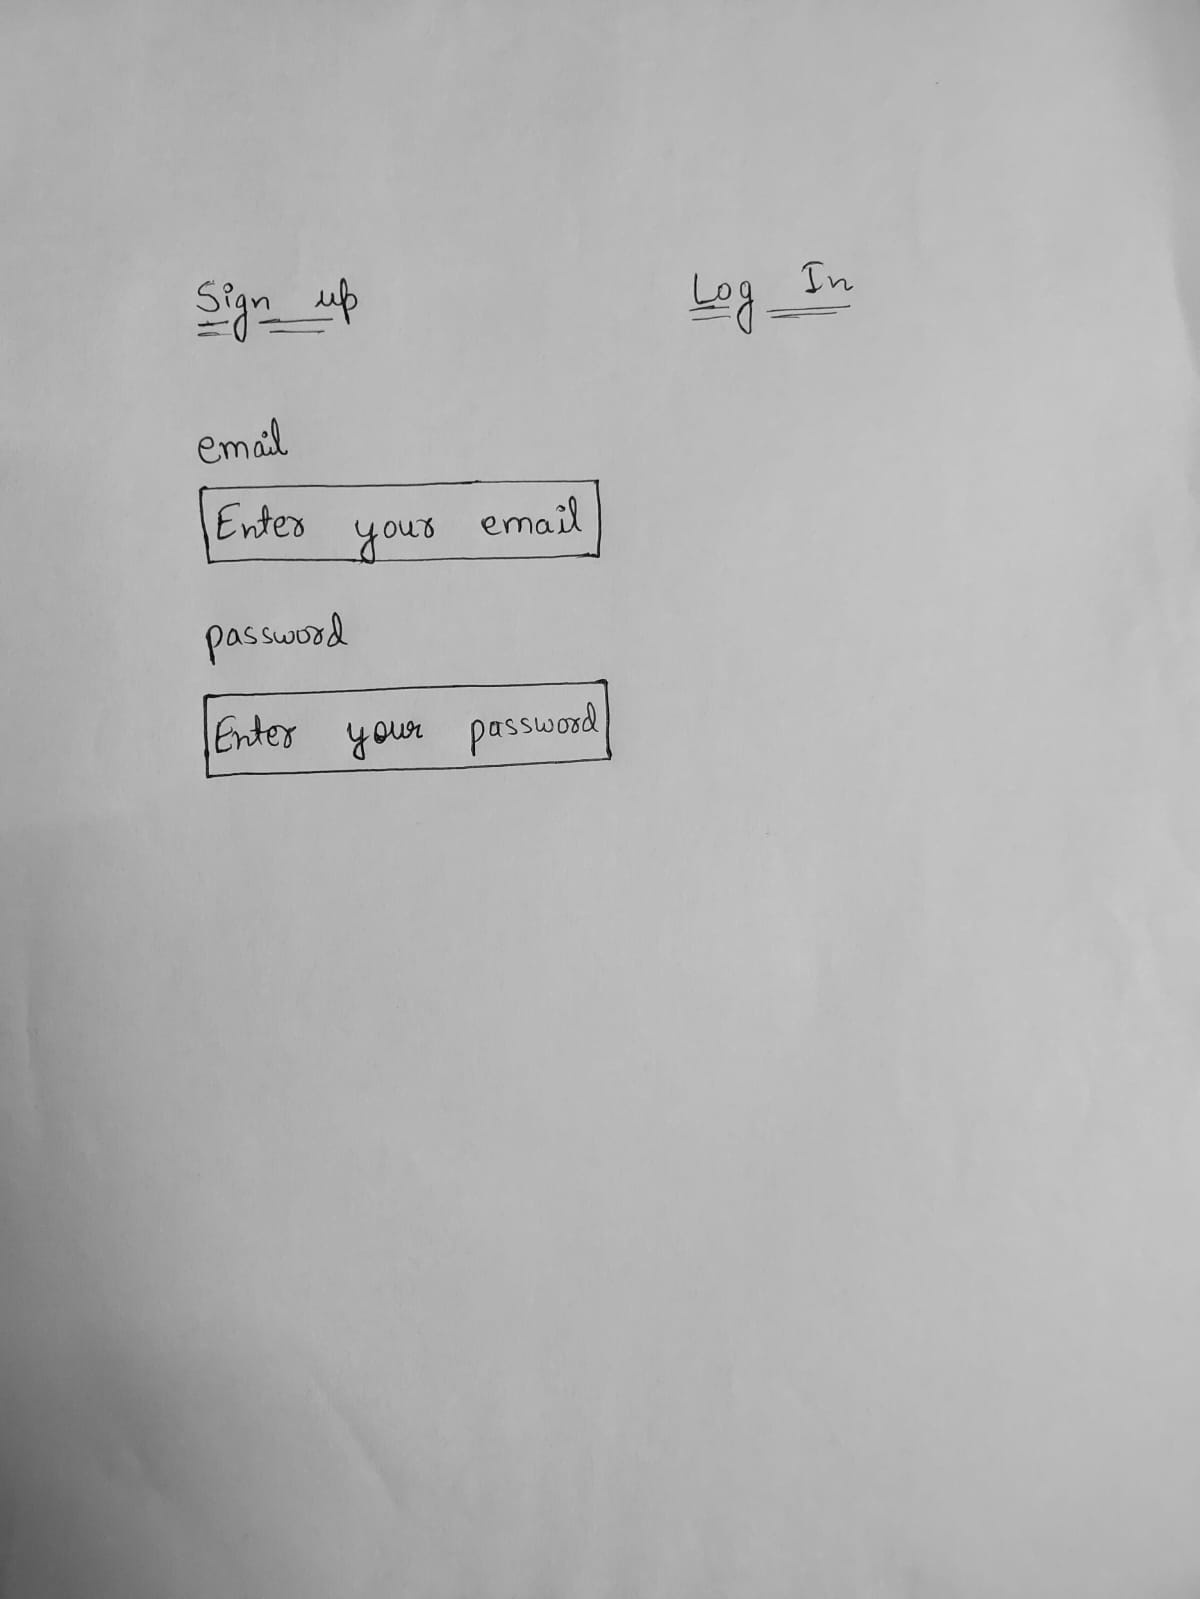 Sign up
Log In
email
Enter your email
password
Enter your password